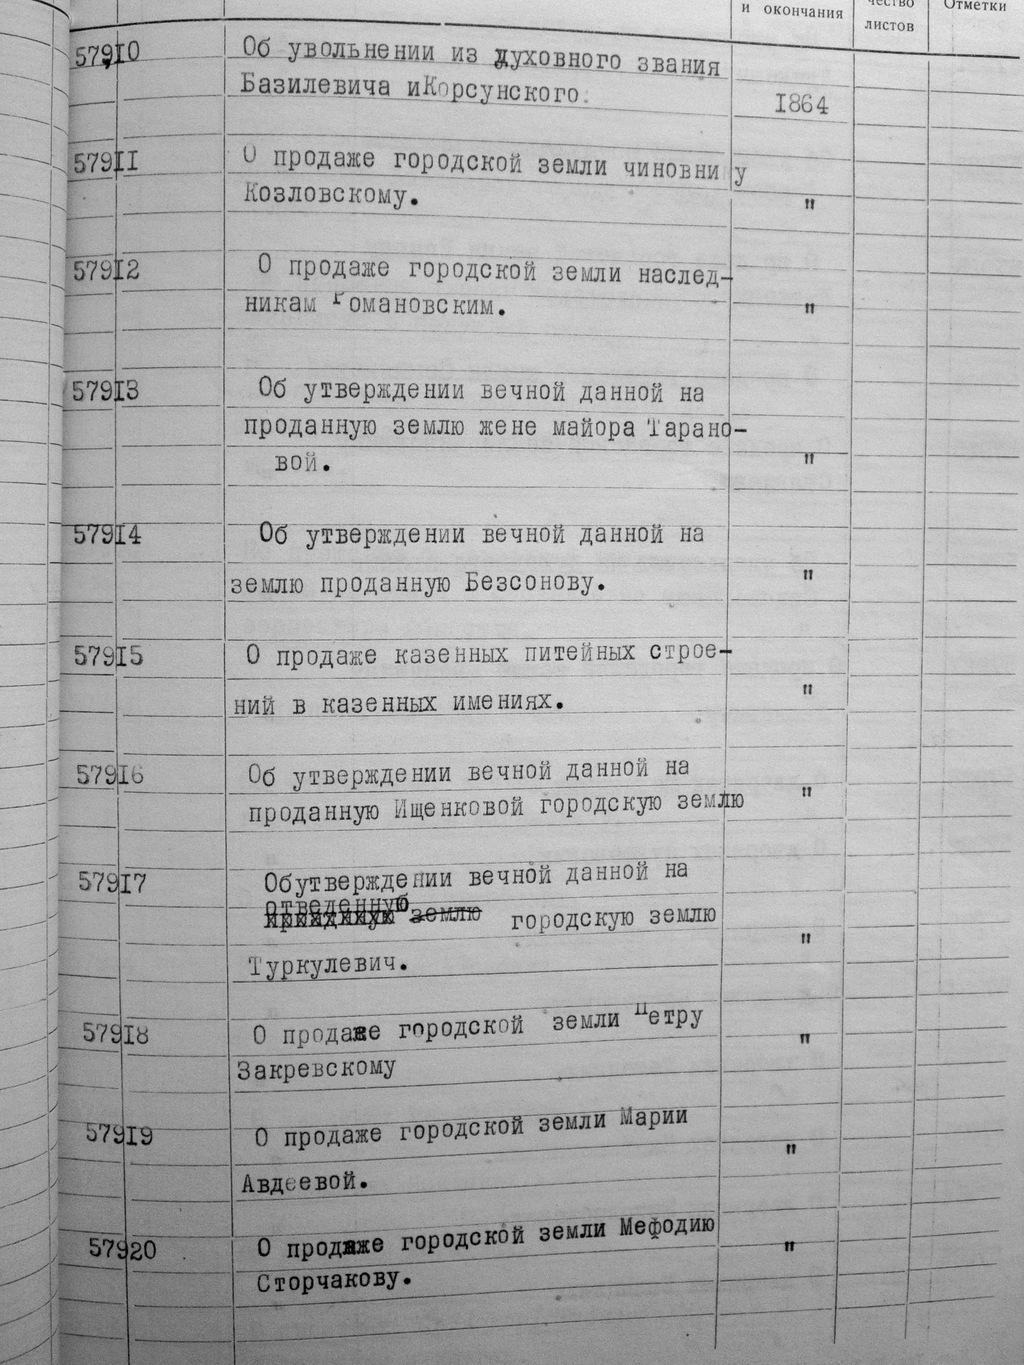 и окончания
чество
листов
Отметки
57910 Об увольнении из духовного звания
Базилевича иКорсунского.
1864
57911 О продаже городской земли чиновнику
Козловскому. "
57912 О продаже городской земли наслед-
никам Романовским. "
57913 Об утверждении вечной данной на
проданную землю жене майора Тарано-
вой. "
57914 Об утверждении вечной данной на
землю проданную Безсонову. "
57915 О продаже казенных питейных строе-
ний в казенных имениях. "
57916 Об утверждении вечной данной на
проданную Ищенковой городскую землю "
57917 Обутверждении вечной данной на
отведенную
землю городскую землю "
Туркулевич.
57918 О продаже городской земли Петру "
Закревскому
57919 О продаже городской земли Марии
Авдеевой. "
57920 О продаже городской земли Мефодию "
Сторчакову.